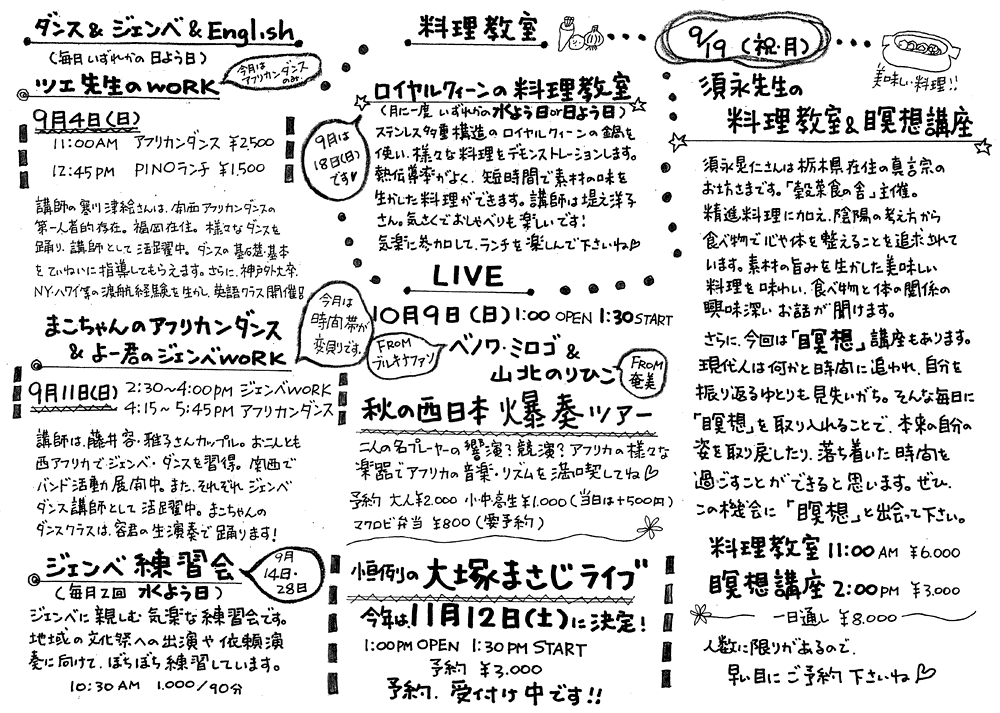 ダンス & ジェンベ & English
(毎月 いずれかの 日よう日)
ツエ先生のWORK
今月は
アフリカンダンス
のみ。
9月4日(日)
11:00AM アフリカンダンス ¥2,500
12:45PM PINOランチ ¥1,500
講師の寒川津絵さんは、南西アフリカンダンスの
第一人者的存在。福岡在住。様々なダンスを
踊り、講師として活躍中。ダンスの基礎・基本
をていねいに指導してもらえます。さらに、神戸外大卒、
NY・ハワイ等の渡航経験を生かし、英語クラス開催!
まこちゃんのアフリカンダンス
& よー君のジェンベWORK
今月は
時間帯が
変則りです。
9月11日(日) 2:30~4:00PM ジェンベWORK
4:15~5:45PM アフリカンダンス
講師は、藤井容・雅子さんカップル。お二人とも
西アフリカでジェンベ・ダンスを習得。関西で
バンド活動展開中。また、それぞれ ジェンベ
ダンス講師として 活躍中。まこちゃんの
ダンスクラスは、容君の生演奏で踊ります!
ジェンベ 練習会
(毎月2回 水よう日)
9月
14日・
28日
ジェンベに親しむ 気楽な練習会です。
地域の文化祭への出演や依頼演
奏に向けて、ぼちぼち練習しています。
10:30AM 1,000/90分
料理教室
ロイヤルクィーンの料理教室
(月に一度 いずれかの水よう日or日よう日)
9月は
18日(日)
です♥
ステンレス多重構造のロイヤルクィーンの鍋を
使い、様々な料理をデモンストレーションします。
熱伝導率がよく、短時間で素材の味を
生かした料理ができます。講師は堤え洋子
さん。気さくでおしゃべりも楽しいです!
気楽に参加して、ランチを楽しんで下さいね♡
LIVE
10月9日(日)1:00 OPEN 1:30START
FROM
ブルキナファソ
ベノワ・ミロゴ &
山北のりひこ
FROM
奄美
秋の西日本 爆奏ツアー
二人の名プレーヤーの響演?競演?アフリカの様々な
楽器でアフリカの音楽・リズムを満喫してね♡
予約 大人¥2,000 小中高生¥1,000(当日は+500円)
マクロビ弁当 ¥800(要予約)
恒例の 大塚まさじライブ
今年は11月12日(土)に決定!
1:00PM OPEN 1:30PM START
予約 ¥3,000
予約、受付け中です!!
9/19(祝・月)
美味しい料理!!
須永先生の
料理教室&瞑想講座
須永晃仁さんは栃木県在住の真言宗の
お坊さまです。「穀菜食の舎」主催。
精進料理に加え、陰陽の考え方から
食べ物で心や体を整えることを追求されて
います。素材の旨みを生かした美味しい
料理を味わい、食べ物と体の関係の
興味深いお話が聞けます。
さらに、今回は「瞑想」講座もあります。
現代人は何かと時間に追われ、自分を
振り返るゆとりも見失いがち。そんな毎日に
「瞑想」を取り入れることで、本来の自分の
姿を取り戻したり、落ち着いた時間を
過ごすことができると思います。ぜひ、
この機会に「瞑想」と出会って下さい。
料理教室 11:00AM ¥6,000
瞑想講座 2:00PM ¥3,000
一日通し ¥8,000
人数に限りがあるので、
早い目にご予約下さいね♡